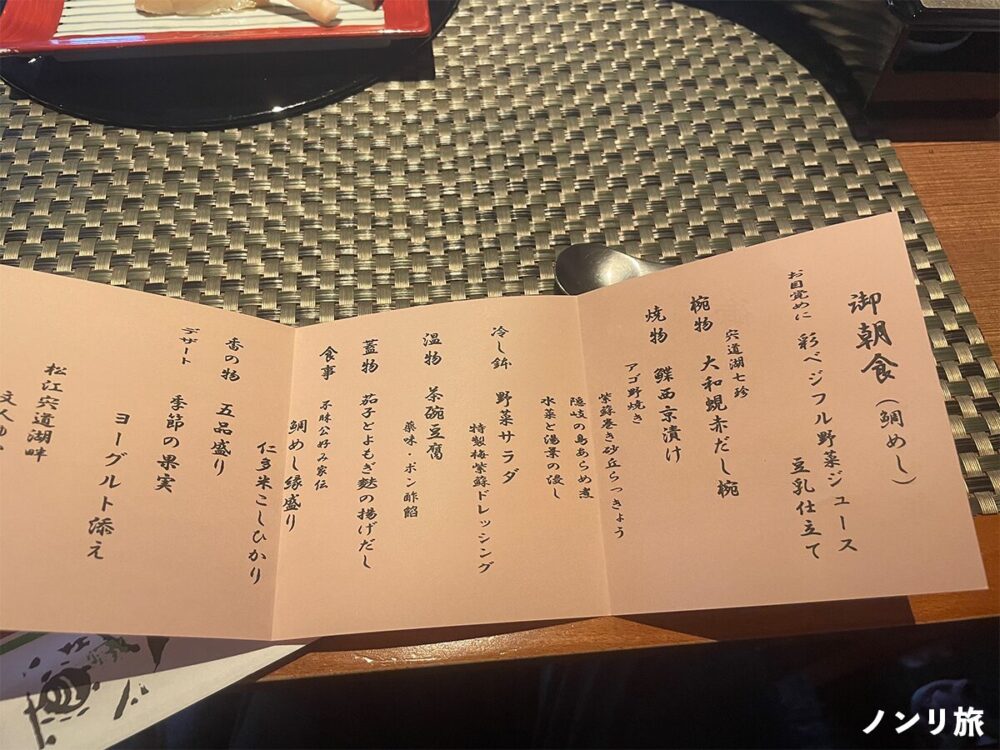 御朝食（鯛めし）
お目覚めに 彩ベジフル野菜ジュース
豆乳仕立て
椀物 宍道湖七珍
大和蜆赤だし椀
焼物 鰈西京漬け
アゴ野焼き
紫蘇巻き砂丘らっきょう
隠岐の島あらめ煮
水菜と湯葉の浸し
冷し鉢 野菜サラダ
特製梅紫蘇ドレッシング
温物 茶碗豆腐
薬味・ポン酢餡
蓋物 茄子とよもぎ麩の揚げだし
食事 不昧公好み家伝
鯛めし縁盛り
仁多米こしひかり
香の物 五品盛り
デザート 季節の果実
ヨーグルト添え
松江宍道湖畔
ノンリ旅